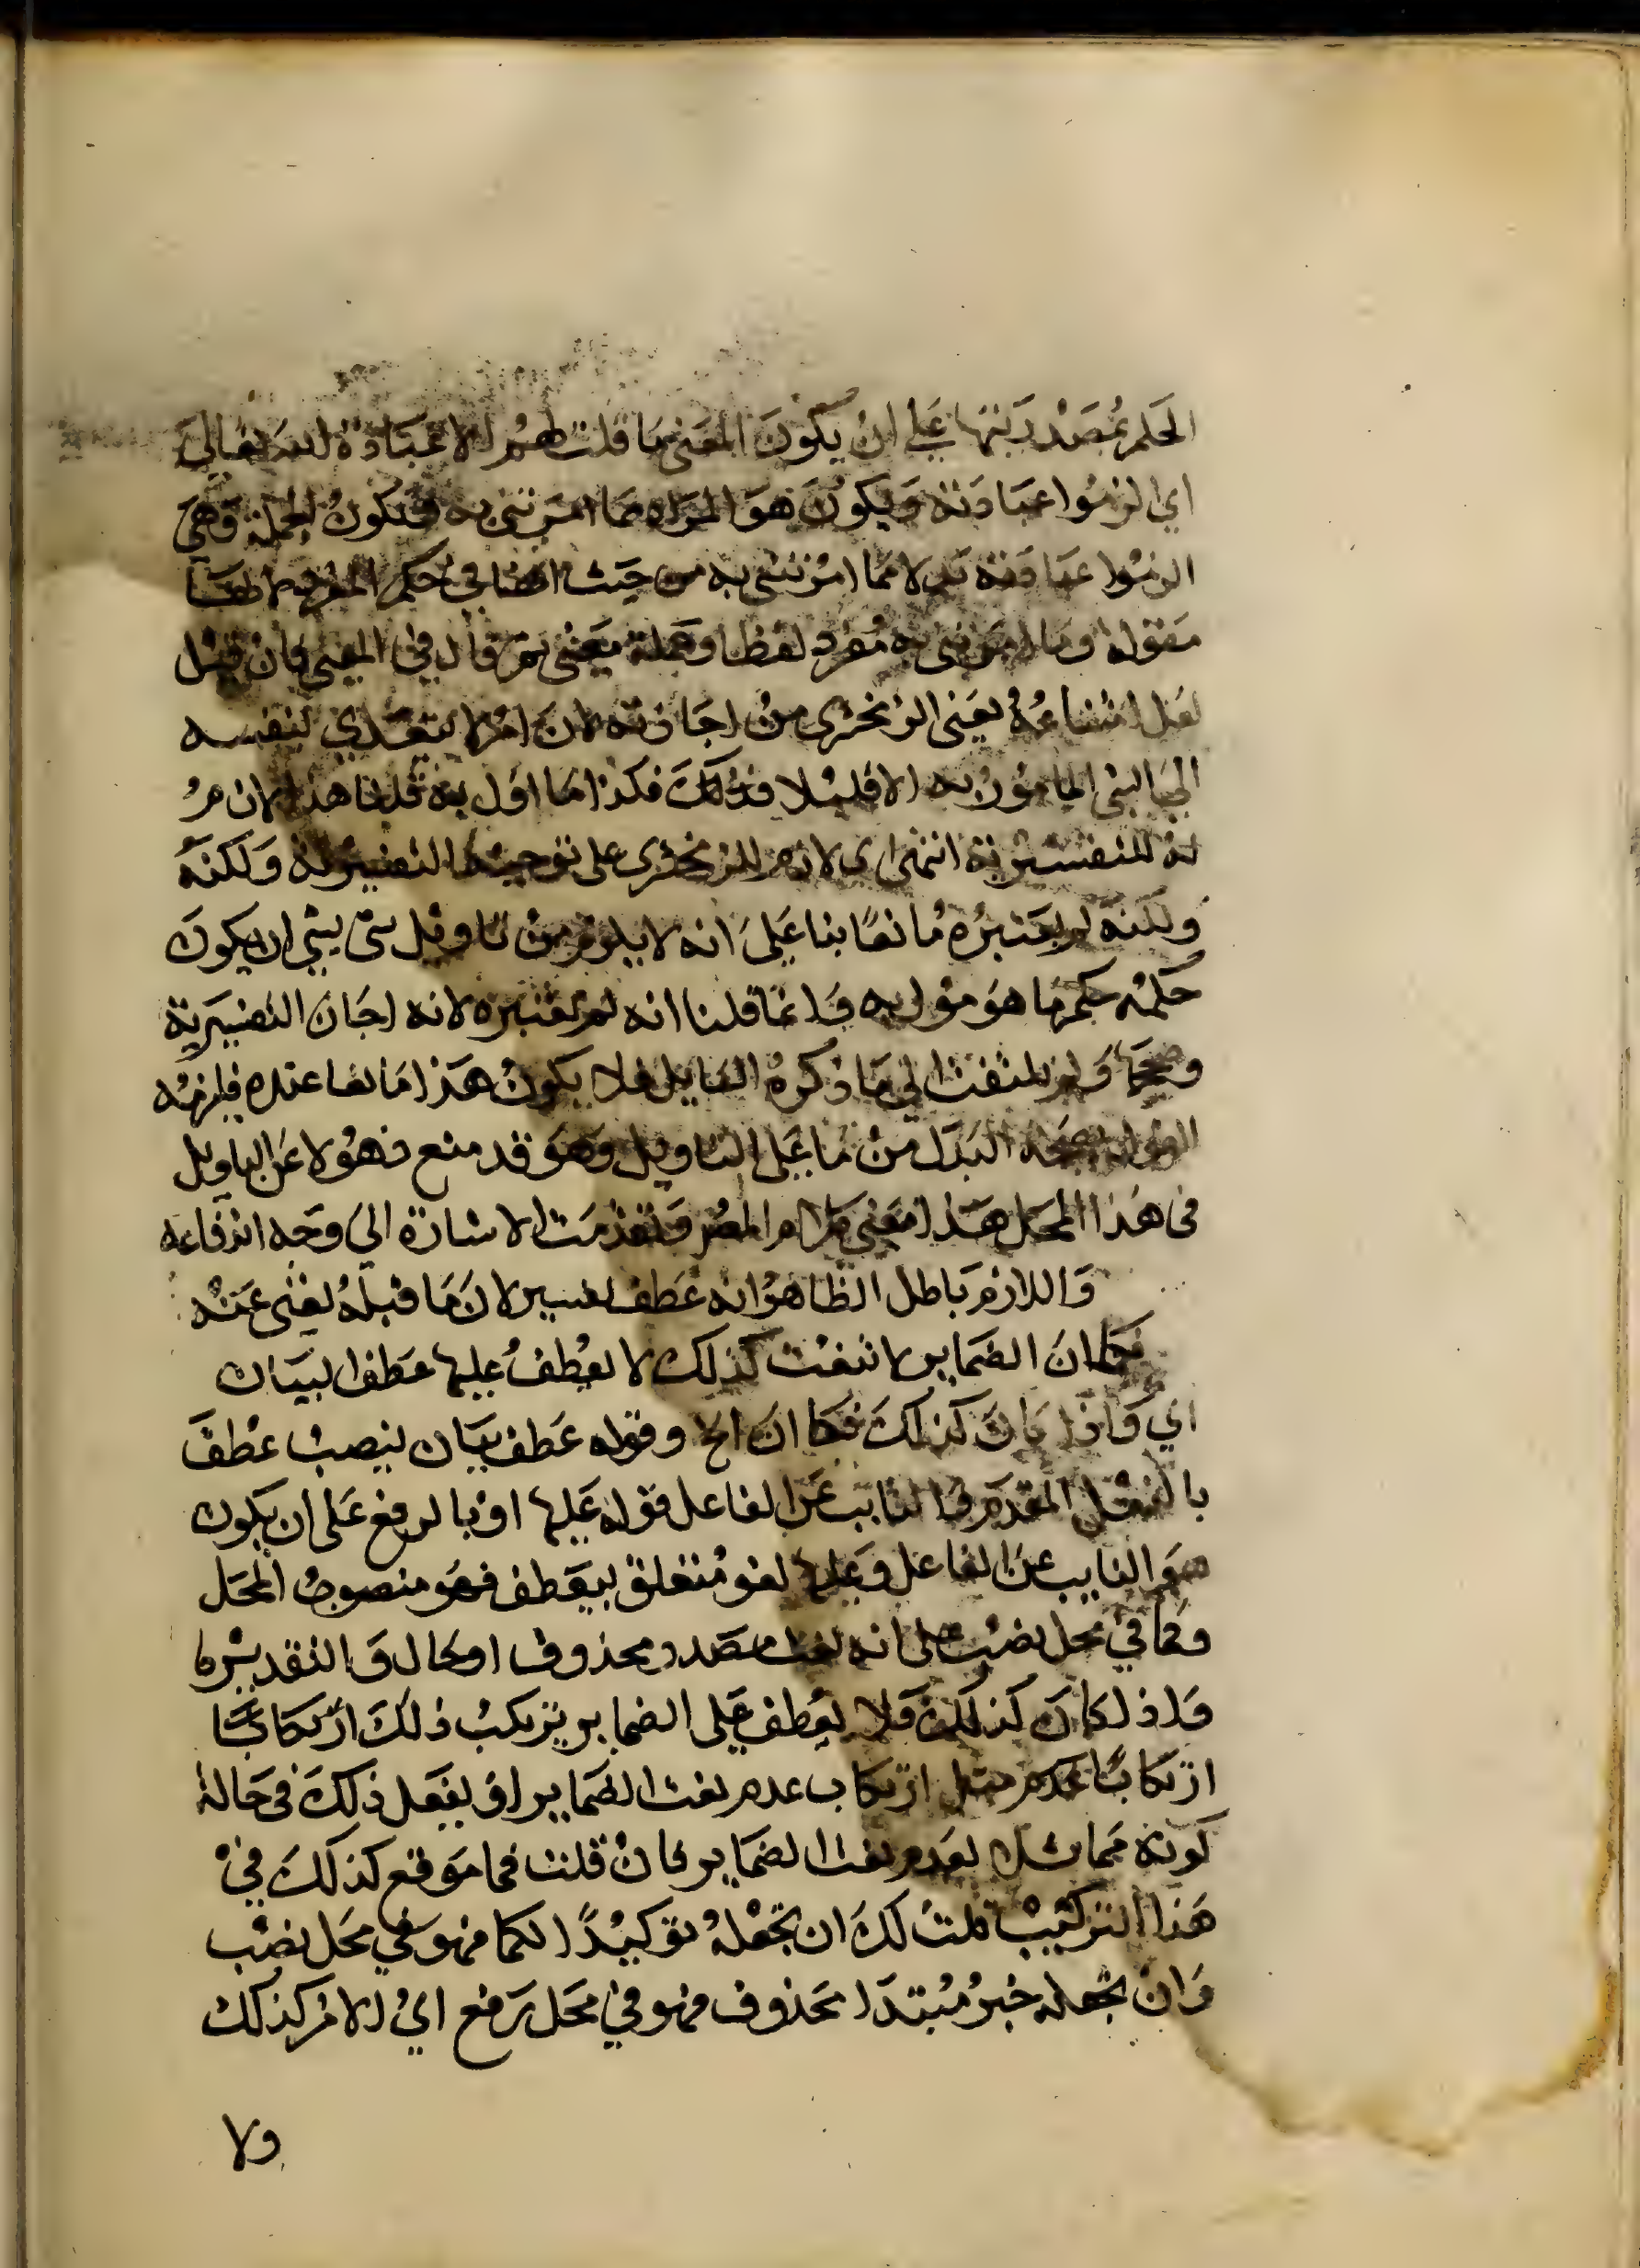 الحكم بمصدريتها علي ان يكون المعنى ما قلت لهم الا عبادة الله تعالي
اي الزموا عبادته ويكون هو المراد مما امرتني به فتكون الجملة وهي
الزموا عبادته بدلا مما امرتني به من حيث انها في حكم المفرد لانها
مقولة وما امرتني به مفرد لفظا وجملة معنى ثم قال في المغني فان قيل
لعل امتناعه يعني الزمخشري من اجازته لان امر لا يتعدي لنفسه
الي الشي المامور به الا قليلا فكذلك فكذا ما اول به قلنا هذا لازم
له للتفسيرية انتهى اي لازم للزمخشري على توجيهه التفسيرية ولكنه
ولكنه لم يعتبره مانعا بنا علي انه لا يلزم من تاويل شي بشي ان يكون
حكمه حكم ما هو مؤول به وانما قلنا انه لم يعتبره لانه اجاز التفسيرية
وصححها ولم يلتفت الي ما ذكره القايل فلا يكون هذا مانعا عنده فيلزمه
القول بصحة البدل من ما علي التاويل وهو قد منع فهولا عن التاويل
في هذا المحل هذا معني مرام المص وتقدمت الاشارة الي وجه اندفاعه
واللازم باطل الظاهر انه عطف تفسير لان ما قبله يغني عنه
فكما ان الضماير لا تنعت كذلك لا يعطف عليها عطف البيان
اي واذا كان كذلك فكما ان الخ وقوله عطف بيان بنصب عطف
بالفعل المقدم والنايب عن الفاعل قوله عليها او بالرفع على ان يكون
هو النايب عن الفاعل وعليها لغو متعلق بيعطف فهو منصوب المحل
وكما في محل نصب على انه نعت مصدر محذوف او حال والتقدير كما
واذا كان كذلك فلا يعطف على الضماير يرتكب ذلك ارتكابا
ارتكابا عدم مثل ارتكاب عدم نعت الضماير او يفعل ذلك في حالة
كونه مماثلا لعدم نعت الضماير فان قلت فما موقع كذلك في
هذا التركيب قلت لك ان تجعله توكيدا لكما فهو في محل نصب
وان تجعله خبر مبتدا محذوف فهو في محل رفع اي الامر كذلك
ولا